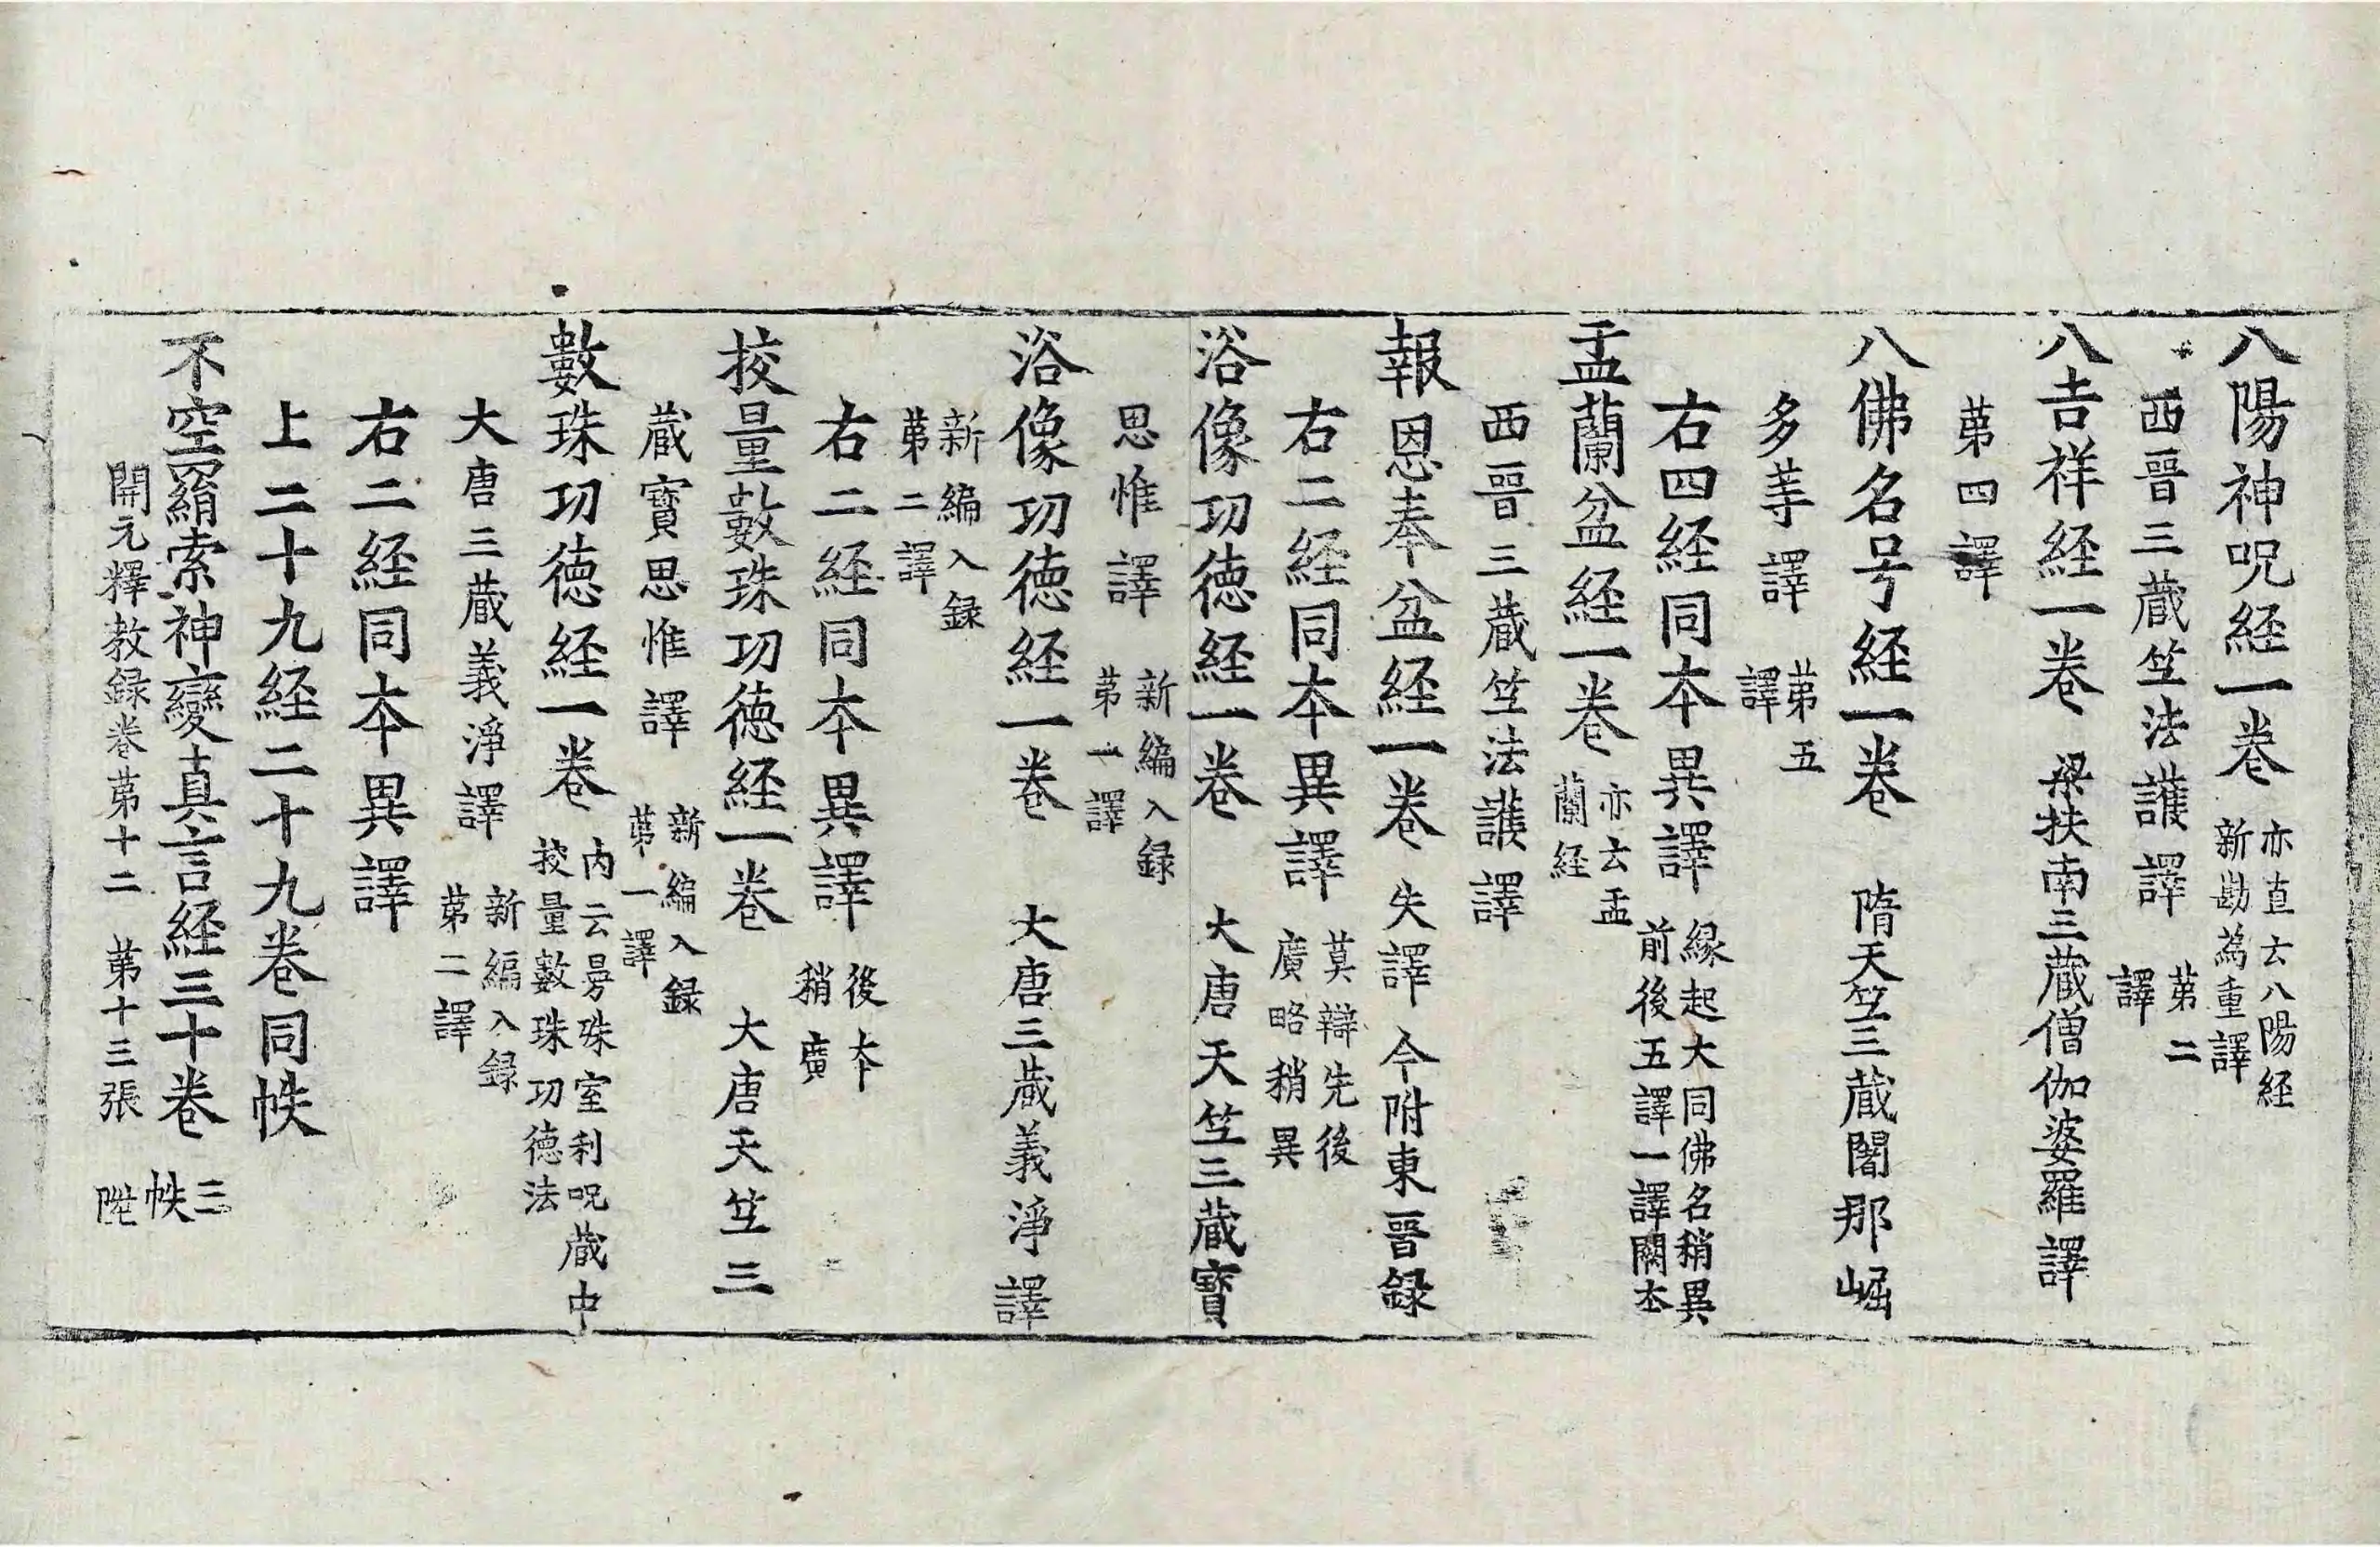 八陽神呪経一卷 亦直云八陽経新勘為重譯
西晉三蔵竺法護譯 苐二譯
八吉祥経一卷 梁扶南三蔵僧伽婆羅譯
苐四譯
八佛名号経一卷 隋天竺三蔵闍那崛
多䓁譯 苐五譯
右四経同本異譯 縁起大同佛名稍異前後五譯一譯闕本
盂蘭盆経一卷 亦云盂蘭経
西晉三蔵竺法護譯
報恩奉盆経一卷 失譯今附東晉録
右二経同本異譯 莫辯先後廣略稍異
浴像功徳経一卷 大唐天竺三蔵寶
思惟譯 新編入録苐一譯
浴像功徳経一卷 大唐三蔵義淨譯
新編入録苐二譯
右二経同本異譯 後本稍廣
挍量數珠功徳経一卷 大唐天竺三
蔵寶思惟譯 新編入録苐一譯
數珠功徳経一卷 内云曼殊室利呪蔵中挍量數珠功德法
大唐三蔵義淨譯 新編入録苐二譯
右二経同本異譯
上二十九経二十九卷同帙
不空羂索神變真言経三十卷 三帙
開元釋教録卷苐十二 苐十三張 陞